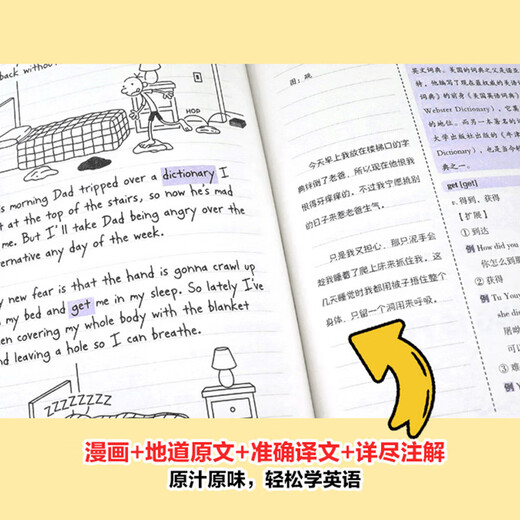 back without
HOP
s morning Dad tripped over a dictionary I
t at the top of the stairs, so now he's mad
me. But I'll take Dad being angry over the
ernative any day of the week.
y new fear is that the hand is gonna crawl up
my bed and get me in my sleep. So lately I've
en covering my whole body with the blanket
nd leaving a hole so I can breathe.
ZZZZZZZZ
图：跳
今天早上我放在楼梯口的字
典绊倒了老爸，所以现在他恨我
恨得牙痒痒的。不过我宁愿挑别
的日子来惹老爸生气。
只是我又担心，那只泥手会
趁我睡着了爬上床来抓住我。这
几天睡觉时我都用被子捂住整个
身体，只留一个洞用来呼吸。
英文词典。美国的词典之父是语
特，他编写了现在最权威的英语
词典》的前身《美国英语词典》
Webster Dictionary)，它
的地位。而另一本著名的
大学出版社出版的《牛津
Dictionary)，也是当今的
典之一。
get [get]
v. 得到，获得
【扩展】
① 到达
例 How did you
你怎么到那
② 获得
例 Tu You
she di
屠呦
可
③ 难
例
漫画+地道原文+准确译文+详尽注解
原汁原味，轻松学英语